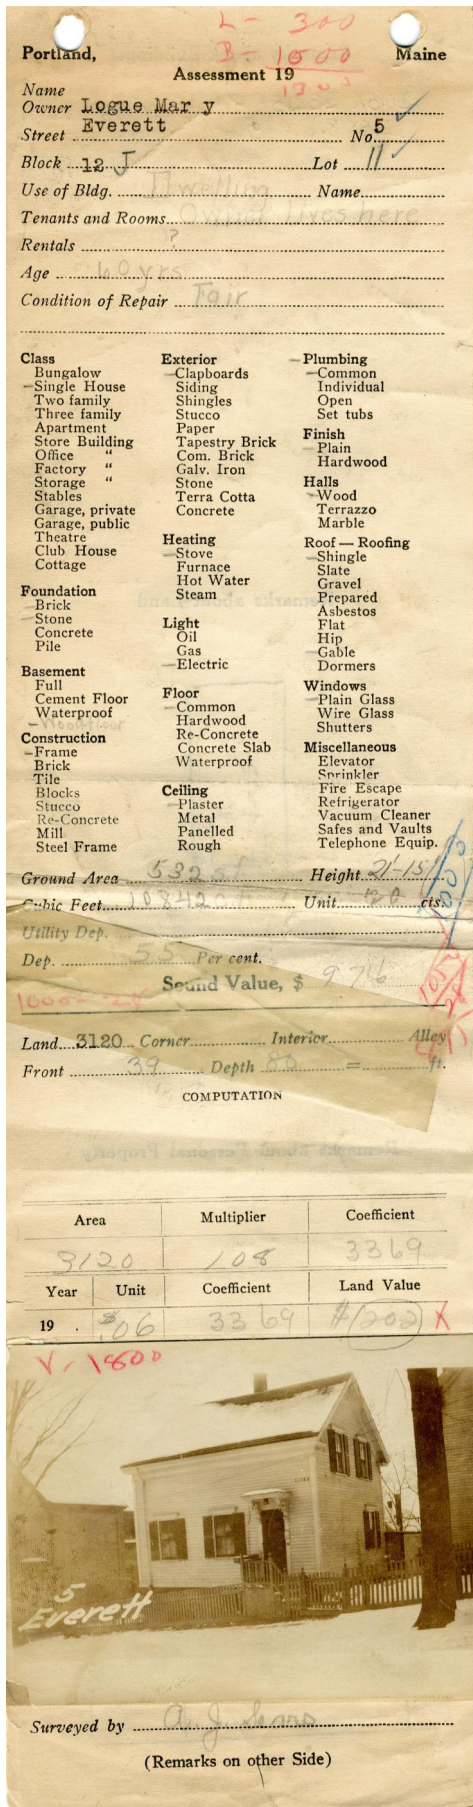 L- 300
Portland, B- 1000 Maine
Assessment 19
1300
Name
Owner Logue Mar y
Street Everett No. 5
Block 12 J Lot 11
Use of Bldg. Dwelling Name
Tenants and Rooms Owner lives here
Rentals ?
Age 60 yrs
Condition of Repair Fair
Class
Bungalow
Single House
Two family
Three family
Apartment
Store Building
Office "
Factory "
Storage "
Stables
Garage, private
Garage, public
Theatre
Club House
Cottage
Foundation
Brick
Stone
Concrete
Pile
Basement
Full
Cement Floor
Waterproof
Construction
Frame
Brick
Tile
Blocks
Stucco
Re-Concrete
Mill
Steel Frame
Exterior
Clapboards
Siding
Shingles
Stucco
Paper
Tapestry Brick
Com. Brick
Galv. Iron
Stone
Terra Cotta
Concrete
Heating
Stove
Furnace
Hot Water
Steam
Light
Oil
Gas
Electric
Floor
Common
Hardwood
Re-Concrete
Concrete Slab
Waterproof
Ceiling
Plaster
Metal
Panelled
Rough
Plumbing
Common
Individual
Open
Set tubs
Finish
Plain
Hardwood
Halls
Wood
Terrazzo
Marble
Roof — Roofing
Shingle
Slate
Gravel
Prepared
Asbestos
Flat
Hip
Gable
Dormers
Windows
Plain Glass
Wire Glass
Shutters
Miscellaneous
Elevator
Sprinkler
Fire Escape
Refrigerator
Vacuum Cleaner
Safes and Vaults
Telephone Equip.
Ground Area 532 Height 21'-15'
Cubic Feet 10842 Unit 20 cts.
Utility Dep.
Dep. 55 Per cent.
Sound Value, $ 976
Land 3120 Corner Interior Alley
Front 39 Depth 80 = ft.
COMPUTATION
Area Multiplier Coefficient
3120 108 3369
Year Unit Coefficient Land Value
19 . $.06 3369 $202 X
V- 1800
5
Everett
Surveyed by
(Remarks on other Side)